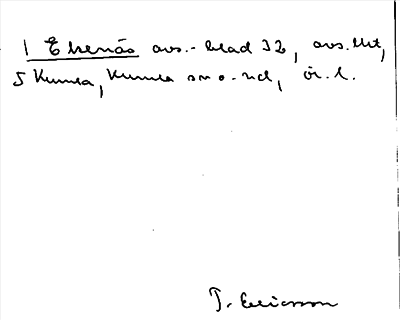 1 Ekenäs avs.-blad 32, avs. litt,
5 Kumla, Kumla sn o. hd, ör. l.
T. Ericsson